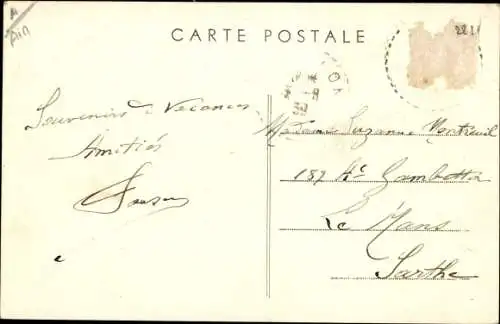 AIN
CARTE POSTALE
Souvenirs de Vacances
Amitiés
Madame Suzanne Montreuil
187 Gambetta
Le Mans
Sarthe